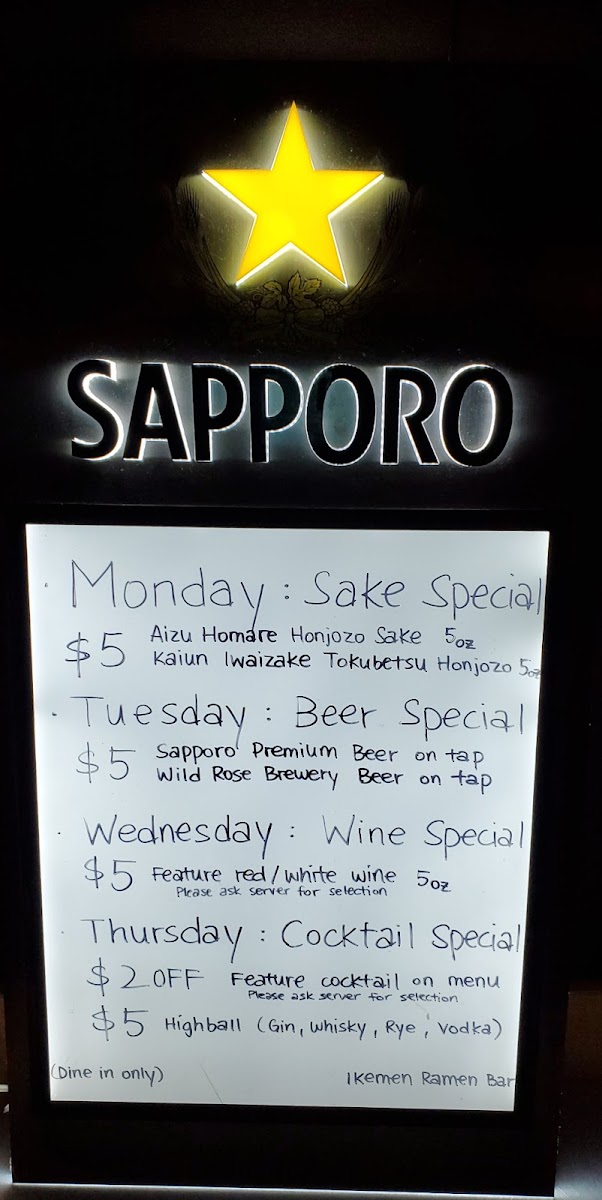 SAPPORO
· Monday : Sake Special
$5 Aizu Homare Honjozo Sake 5oz
Kaiun Iwaizake Tokubetsu Honjozo 5oz
· Tuesday : Beer Special
$5 Sapporo Premium Beer on tap
Wild Rose Brewery Beer on tap
· Wednesday : Wine Special
$5 Feature red/white wine 5oz
Please ask server for selection
· Thursday : Cocktail Special
$2 OFF Feature cocktail on menu
Please ask server for selection
$5 Highball (Gin, Whisky, Rye, Vodka)
(Dine in only) Ikemen Ramen Bar